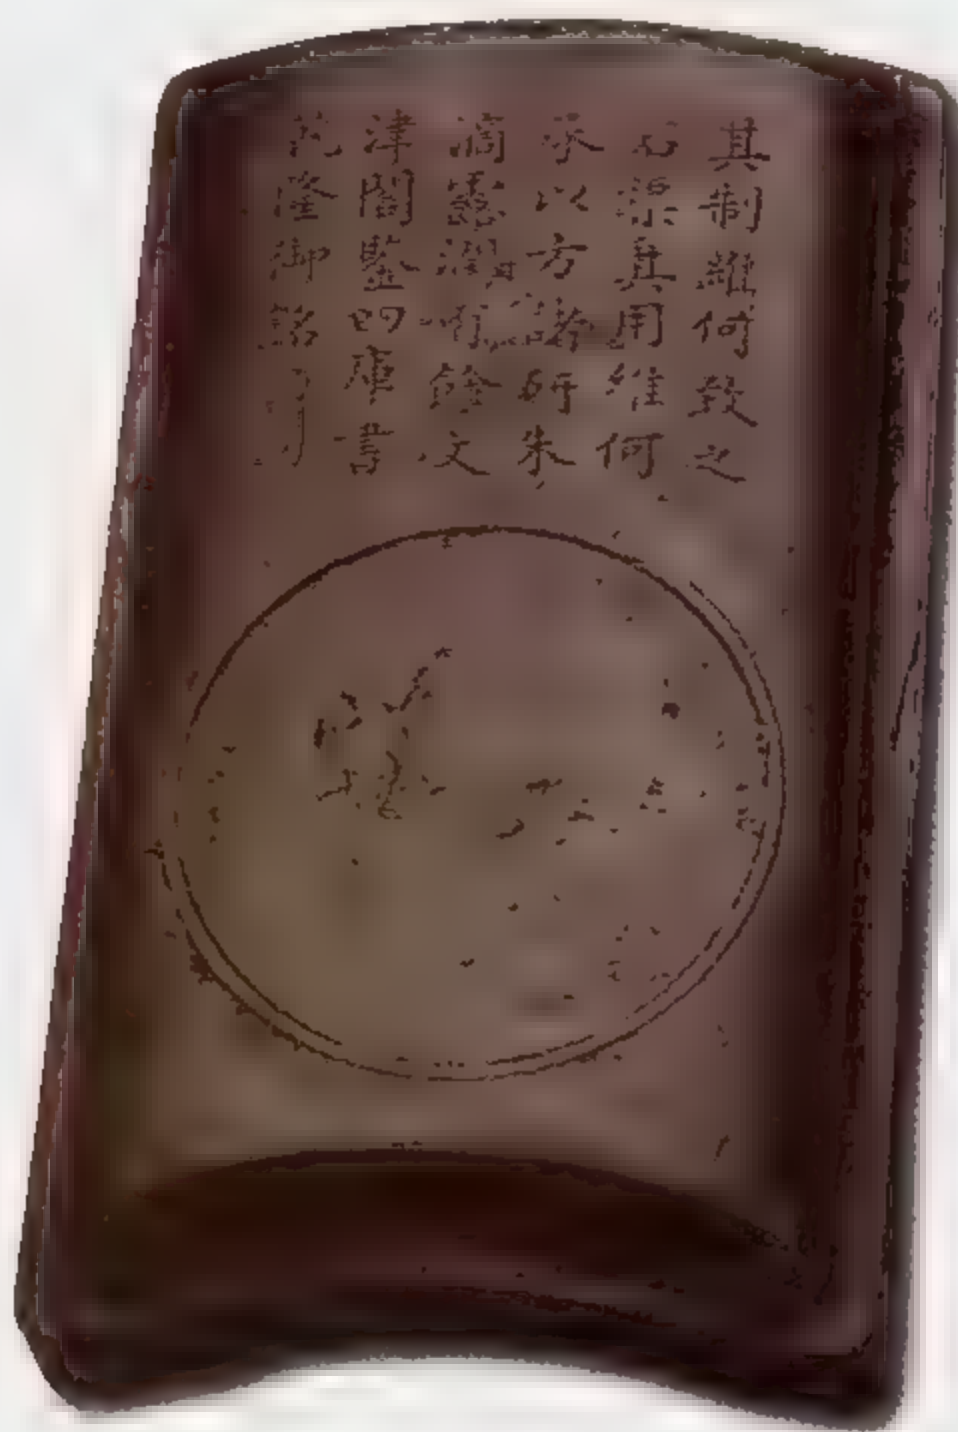 其制維何致之
石渠其用維何
承以方諸研朱
滴露潤有餘文
津閣鑒四庫書
乾隆御銘